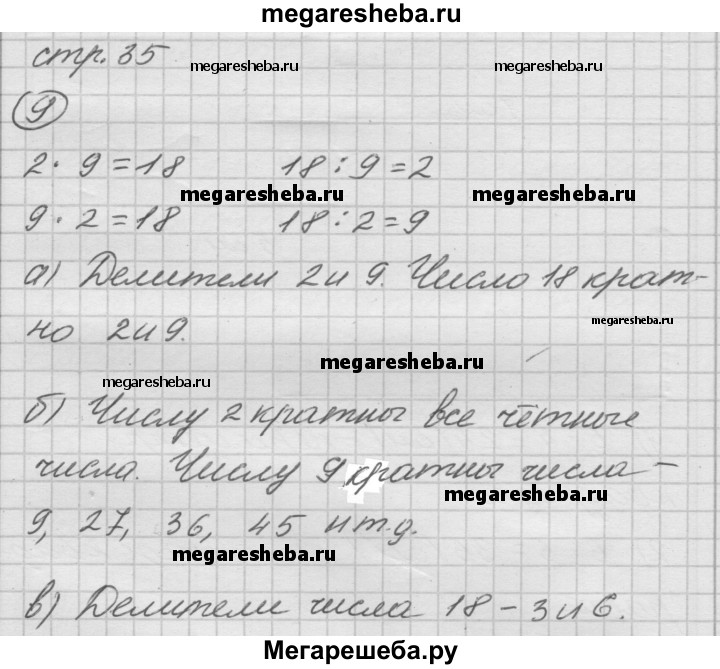 megaresheba.ru
стр. 35
megaresheba.ru megaresheba.ru
9
2 · 9 = 18 18 : 9 = 2
megaresheba.ru megaresheba.ru
9 · 2 = 18 18 : 2 = 9
а) Делители 2 и 9. Число 18 крат-
megaresheba.ru
но 2 и 9.
megaresheba.ru
megaresheba.ru
б) Числу 2 кратны все чётные
числа. Числу 9 кратны числа –
megaresheba.ru
9, 27, 36, 45 и т.д.
megaresheba.ru
в) Делители числа 18 – 3 и 6.
Мегарешеба.ру